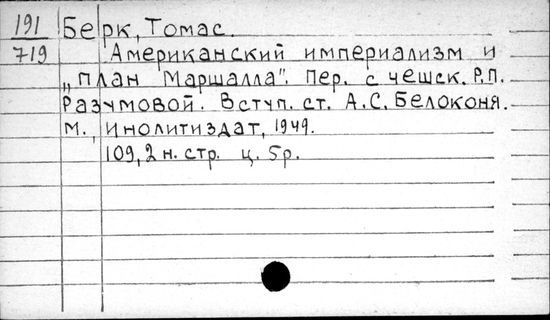 191 Берк, Томас.
719 Американский империализм и
„план Маршалла". Пер. с чешск. Р.П.
Разумовой. Вступ. ст. А.С. Белоконя.
М., Инолитиздат, 1949.
109, 2 н. стр. ц. 5р.